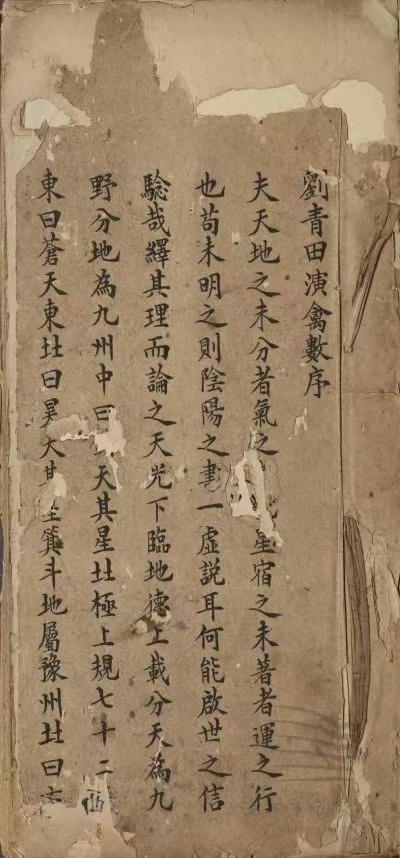 劉青田演禽數序
夫天地之未分者氣之星宿之未著者運之行
也苟未明之則陰陽之書一虛說耳何能啟世之信
驗哉繹其理而論之天光下臨地德上載分天為九
野分地為九州中曰天其星北極上規七十二
東曰蒼天東北曰旻天其箕斗地屬豫州北曰玄